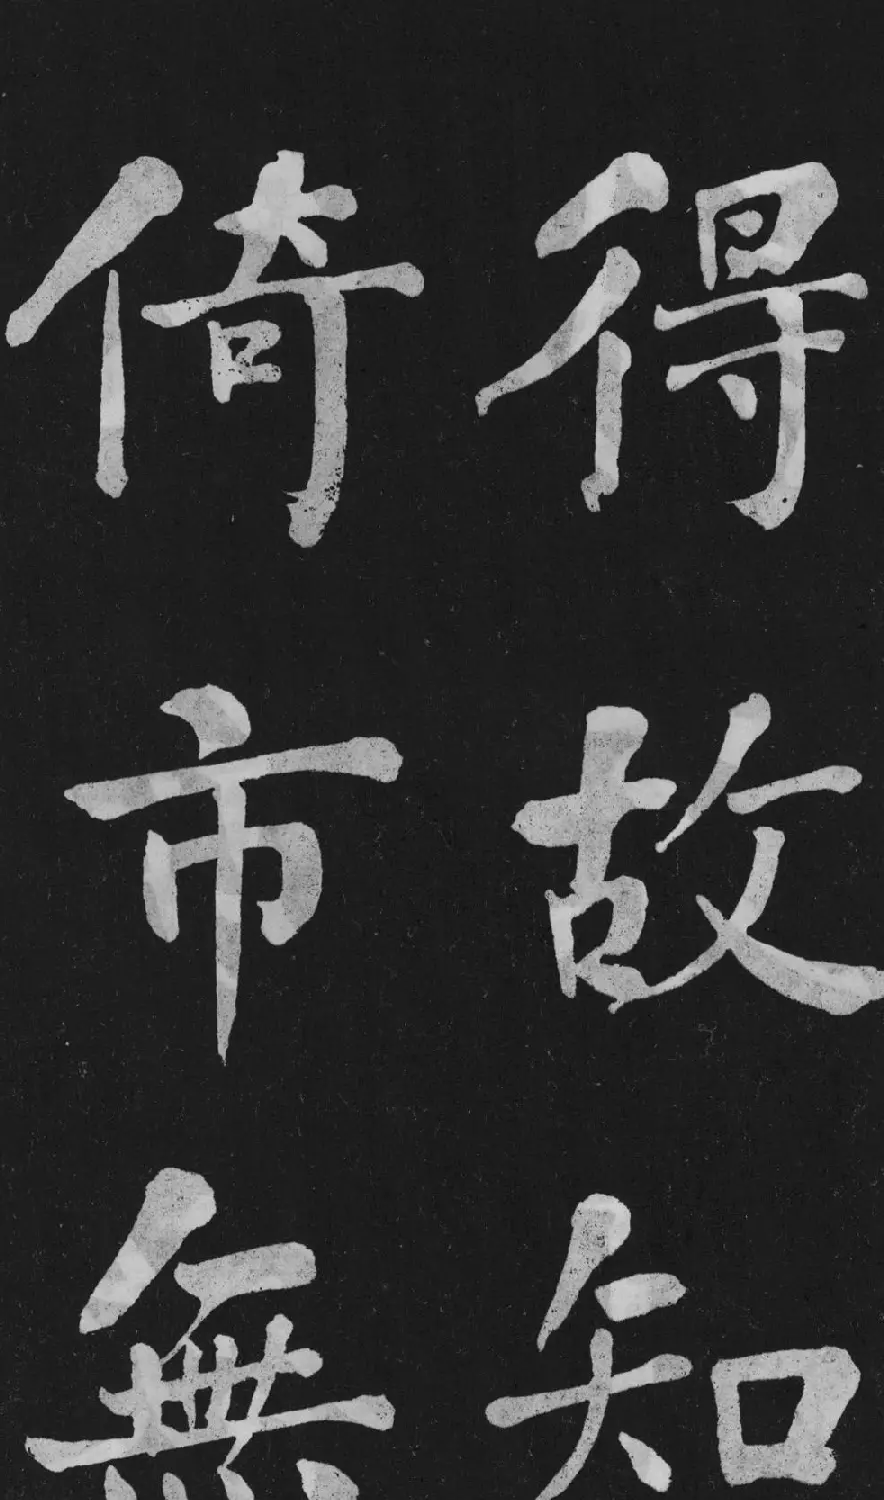 得故知
倚市無